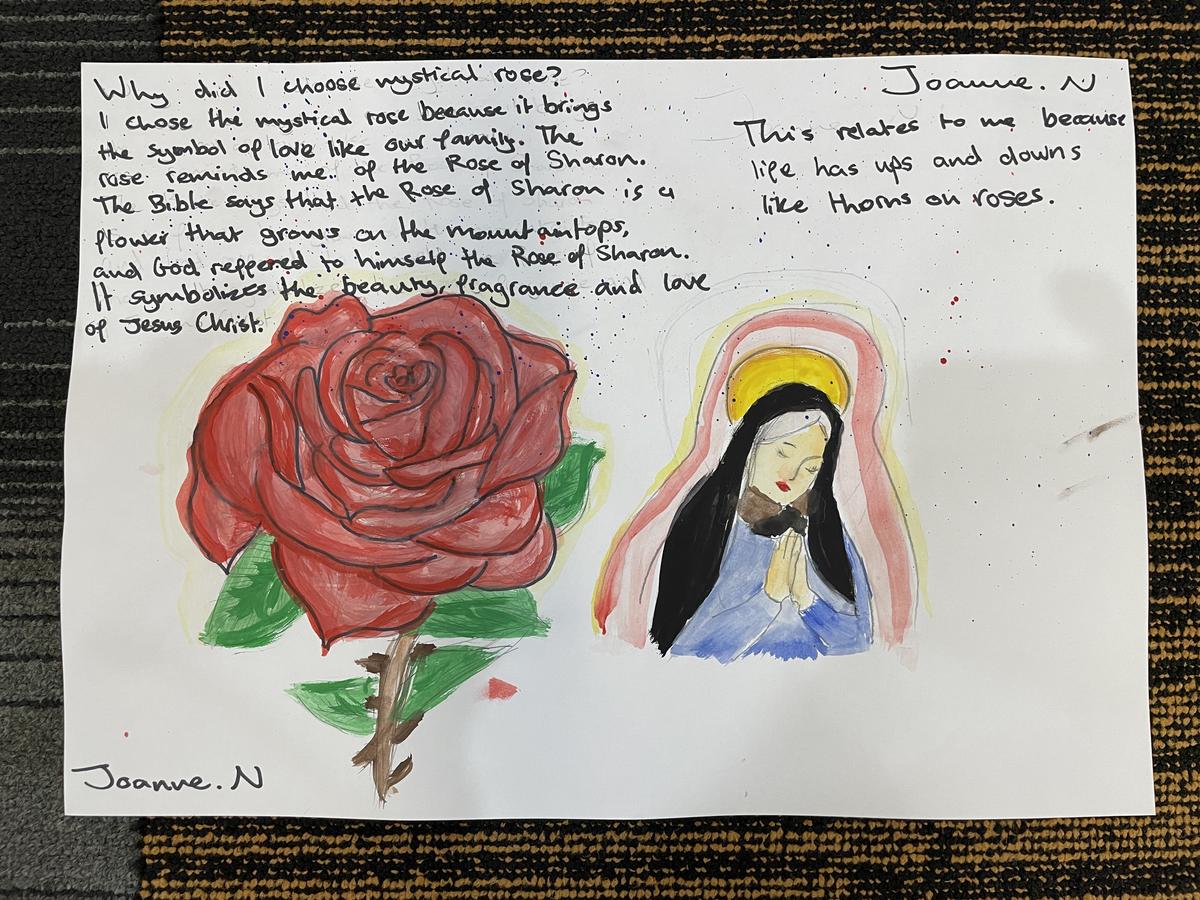 Why did I choose mystical rose?
I chose the mystical rose because it brings
the symbol of love like our family. The
rose reminds me of the Rose of Sharon.
The Bible says that the Rose of Sharon is a
flower that grows on the mountaintops,
and God reffered to himself the Rose of Sharon.
It symbolizes the beauty, fragrance and love
of Jesus Christ.
Joanne. N
This relates to me because
life has ups and downs
like thorns on roses.
Joanne. N